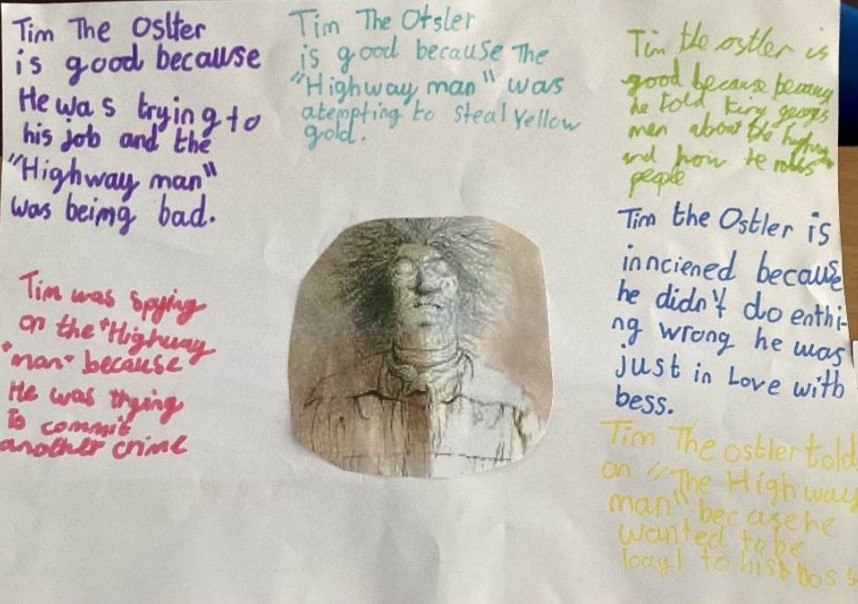 Tim The Oslter
is good because
He was trying to
his job and the
"Highway man"
was being bad.
Tim The Otsler
is good because The
"Highway man" was
atempting to steal Yellow
gold.
Tim the ostler is
good because
he told king georges
men about the
and how he robbs
people
Tim was spying
on the "Highway
"man" because
He was trying
to commit
another crime
Tim the Ostler is
innciened because
he didn't do enthi-
ng wrong he was
just in Love with
bess.
Tim The ostler told
on "The Highway
man" becase he
wanted to be
loayl to his boss